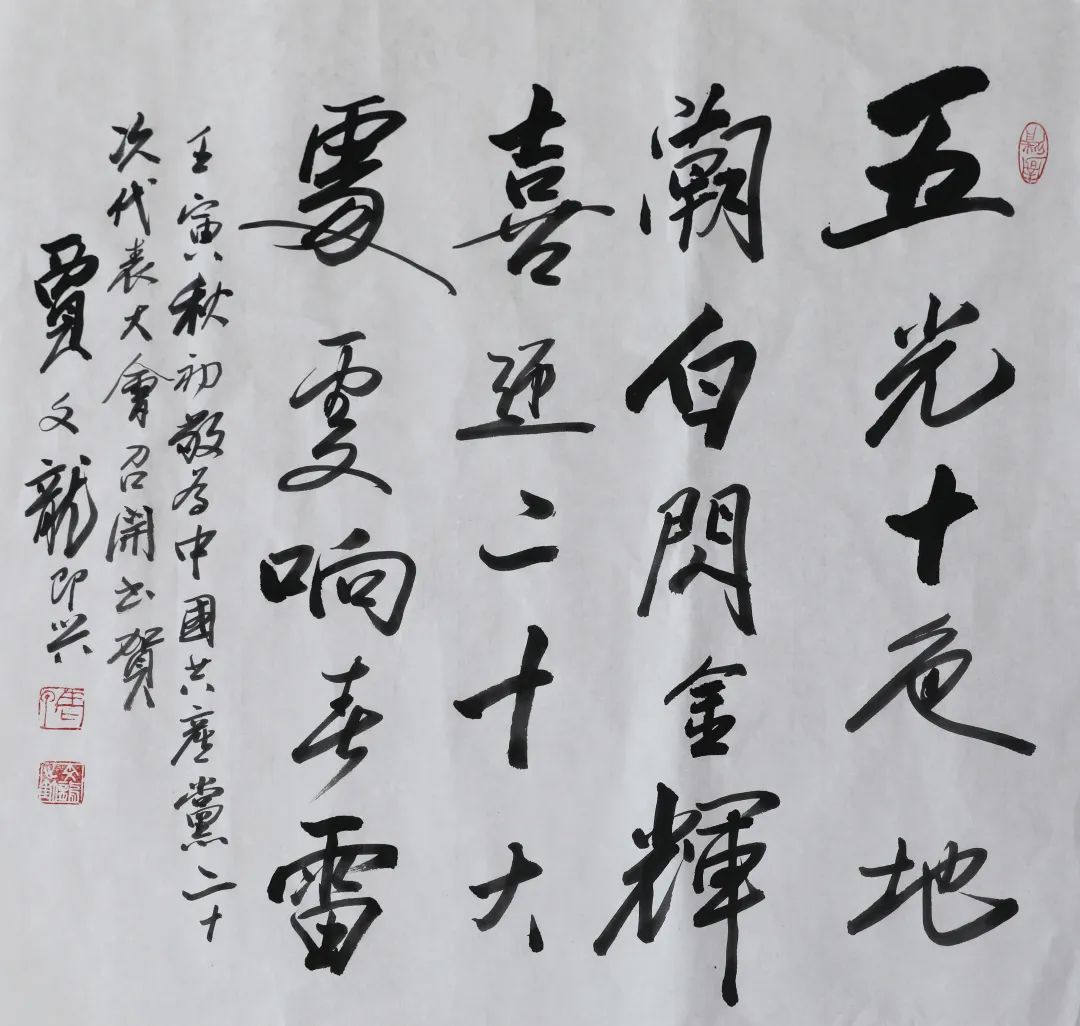 五光十色地
白閃金輝
喜迎二十大
處處响春雷
壬寅秋初敬為中國共產黨二十
次代表大會召開书賀
賈文龍即兴